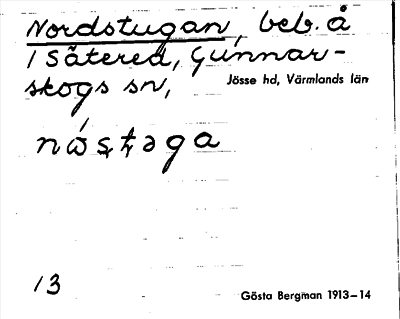 Nordstugan, beb. å
1 Sätered, Gunnar-
skogs sn,
Jösse hd, Värmlands län
nωstaga
13
Gösta Bergman 1913-14